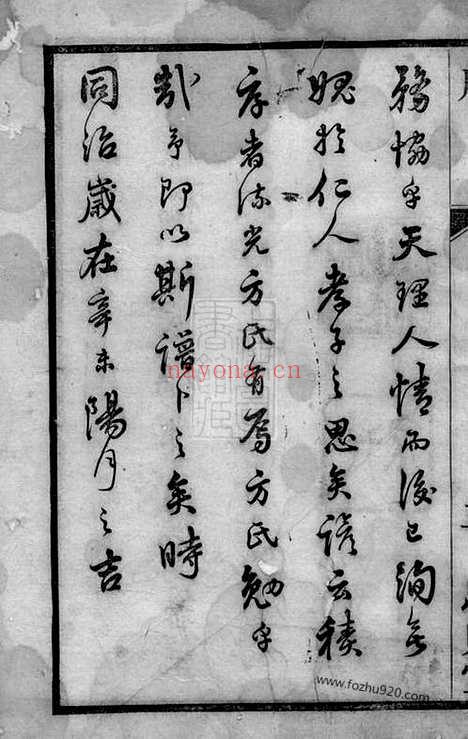 務恊乎天理人情而後已詢無
愧於仁人孝子之思矣諺云積
厚者流光方氏有焉方氏勉乎
哉予即以斯譜卜之矣時
同治歲在辛未陽月之吉
nayona.cn
www.fozhu920.com